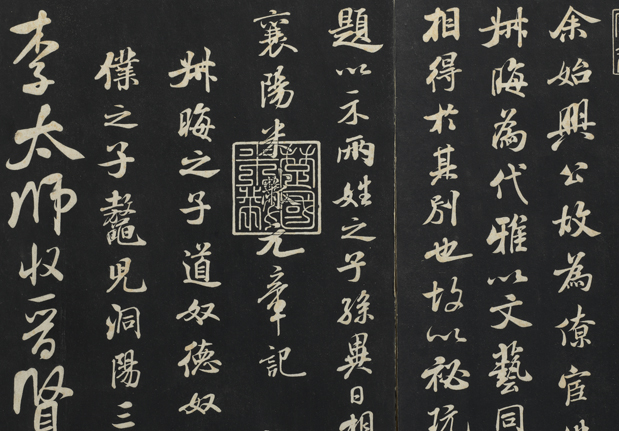 余始興公故為僚宦
叔晦為代雅以文藝同
相得於其別也故以秘玩
題以示兩姓之子孫異日相
襄陽米黻元章記
叔晦之子道奴德奴
僕之子鼇兒洞陽三
李太師收晉賢